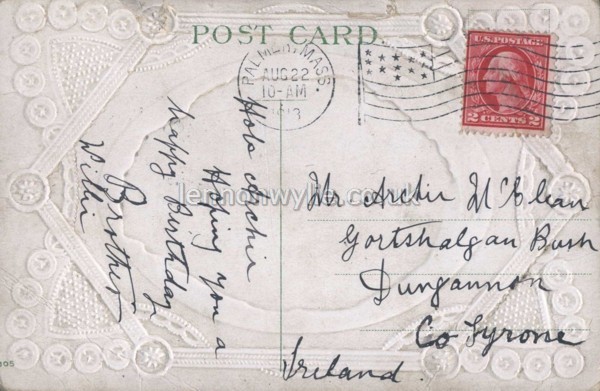 POST CARD.
PALMER, MASS.
AUG 22
10-AM
1913
U.S. POSTAGE
2 CENTS 2
Holo Archie
Hoping you a
happy Birthday
Brother
Willie
Mr Archie McClean
Gortshalgan Bush
Dungannon
Co Tyrone
Ireland.
lennonwylie.co.uk
105